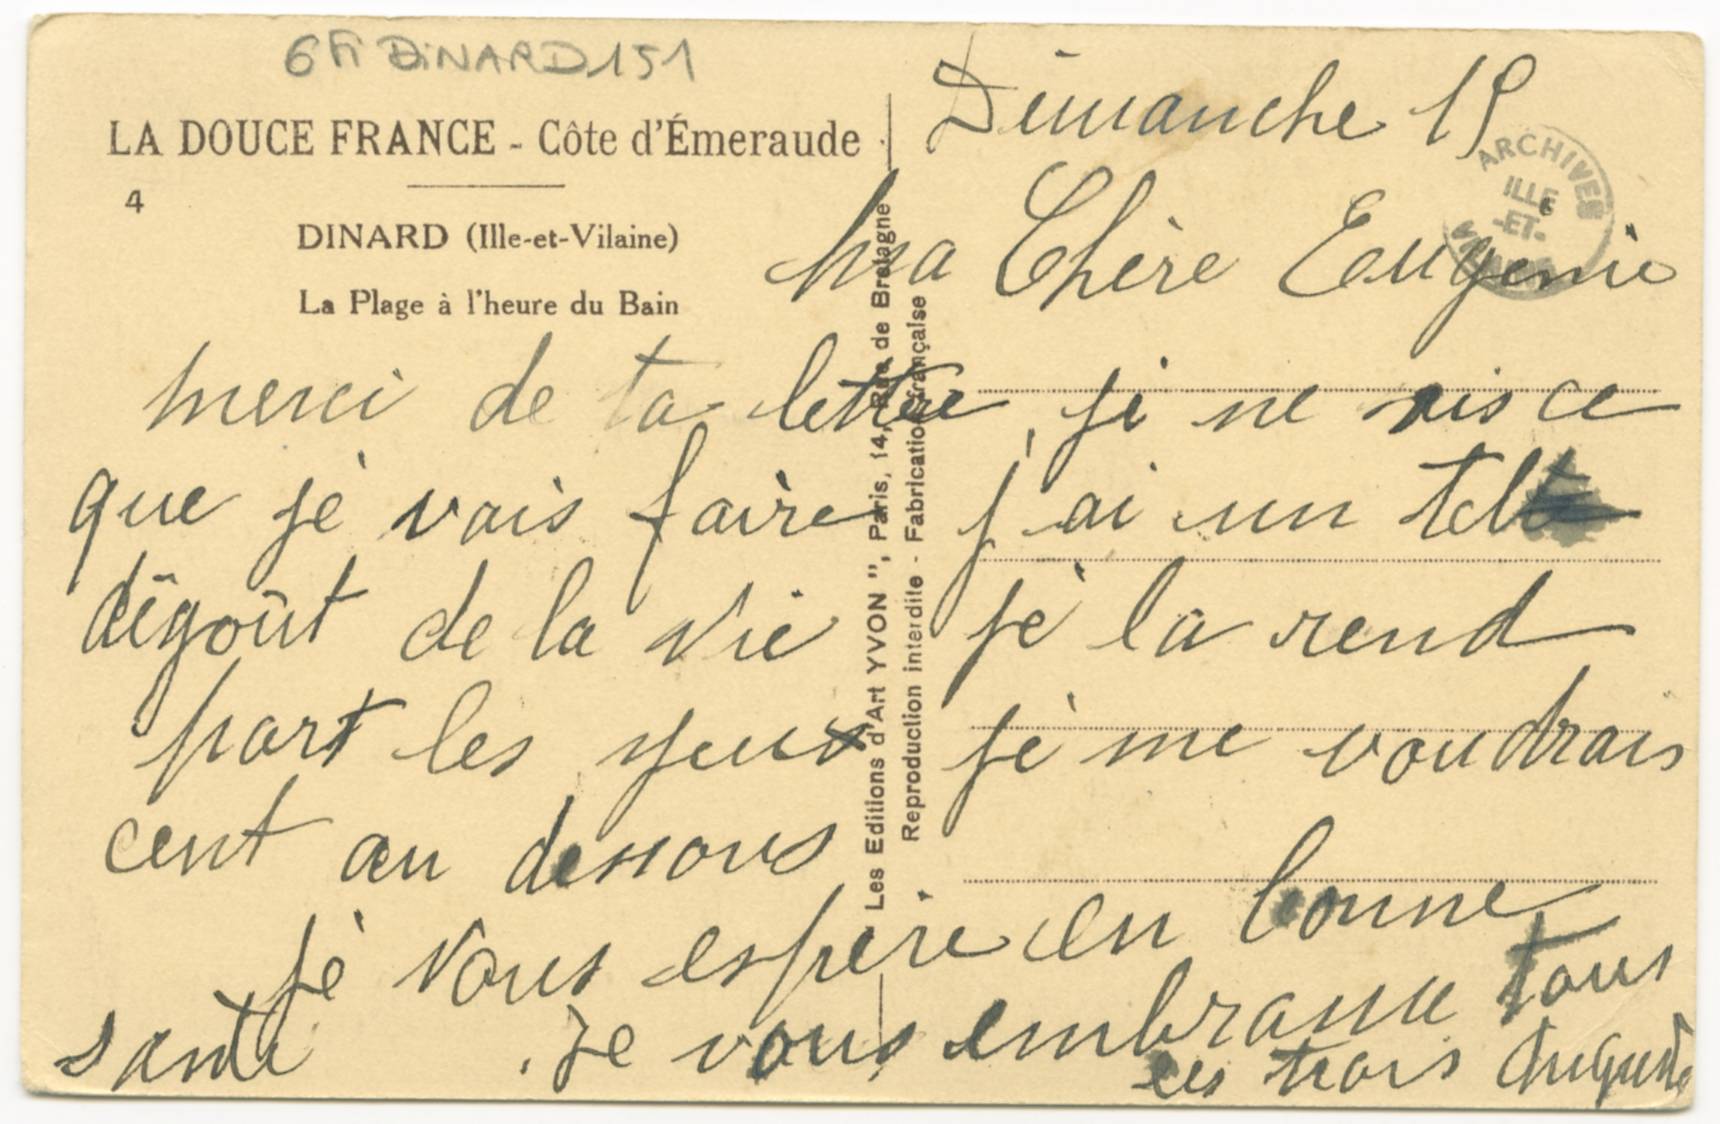 6 Fi DiNARD 151
LA DOUCE FRANCE - Côte d'Émeraude
4
DINARD (Ille-et-Vilaine)
La Plage à l'heure du Bain
Les Editions d'Art YVON", Paris, 14, Rue de Bretagne
Reproduction interdite - Fabrication française
ARCHIVES
ILLE
-ET-
VILAINE
Dimanche 15
Ma Chère Eugenie
merci de ta lettre, je ne sis ce
que je vais faire j'ai un tel
dégoût de la vie je la rend
part les yeux je me voudrais
cent au dessous
je vous espère en bonne
santé. Je vous embrasse tous
les trois Auguste